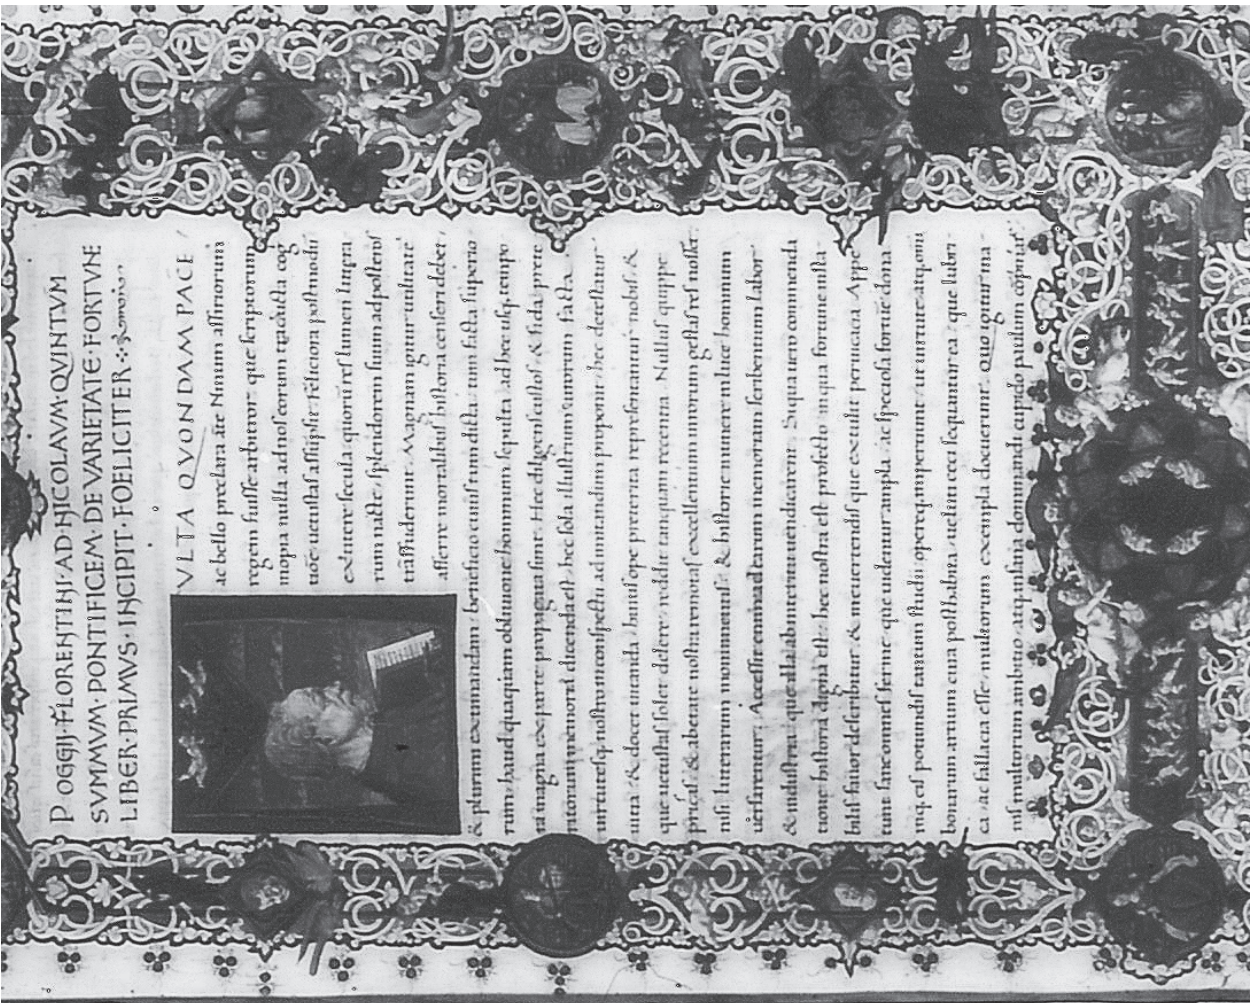 POGGII · FLORENTINI · AD · NICOLAVM · QVINTVM
SVMMVM · PONTIFICEM · DE VARIETATE · FORTVNE
LIBER · PRIMVS · INCIPIT · FOELICITER
VLTA QVONDAM PACE
ac bello preclara ãte Ninum assiriorum
regem fuisse arbitror: que scriptorum
inopia nulla ad nos eorum
secula lumen
rum splendorem suum ad posteros
trãsfuderunt. Magnam igitur utilitatē
afferre mortalibus historia censeri debet,
& plurimi existimanda: beneficio cuius tum dicta, tum facta superio
rum, haud quaquam obliuione hominum sepulta, ad hec usq; tempo
ra magna ex parte propagata sint. Hec
dicenda est: hec sola illustrium uirorum facta
in conspectu admirandum imponit: hec
& docet imitanda: huius ope preterita representantur nobis: &
que uetustas solet delere, reddit tanquam recentia. Nullus quippe
priscas & ab etate nostra remotas excellentium uirorum gestas res nosset
nisi literarum monimentis, & historie munere in luce hominum
uersarentur. Accessit enim ad earum memoriam scribentium labor
& industria: que illas ab interitu uendicarent. Siqua uero commenda
tione historia digna est: hec nostra est profecto in qua fortune insta
bilis fauor describitur, & in euertendis que extulit pertinacia. Appe
tunt sane omnes ferme que uidentur ampla, ac speciosa fortūe dona
inq; eis potiundis tantum studii opereq; impenitur, ut
bonarum artium cura posthabita, uelut ceci sequantur ea, que lubri
ca, ac fallacia esse, multorum exempla docuerunt. Quo igitur ma
multorum ambitio, atq; insana dominandi cupido paulum